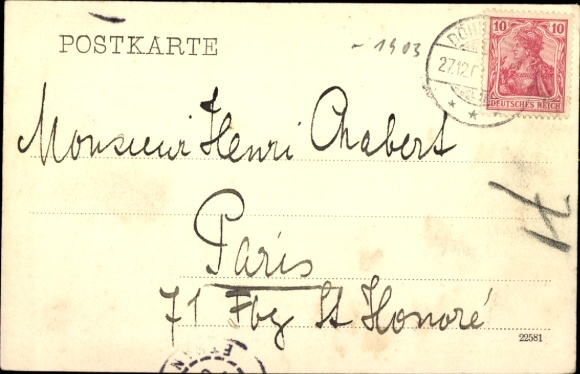 POSTKARTE
- 1903
27.12.
10 10
DEUTSCHES REICH
Monsieur Henri Chabert
Paris
71 Fbg St Honoré
22581